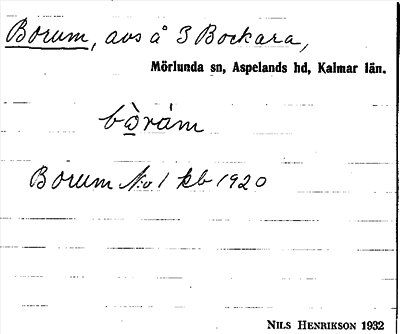 Borum, avs å 3 Bockara,
Mörlunda sn, Aspelands hd, Kalmar län.
bòrám
Borum No 1 kb 1920
NILS HENRIKSON 1932